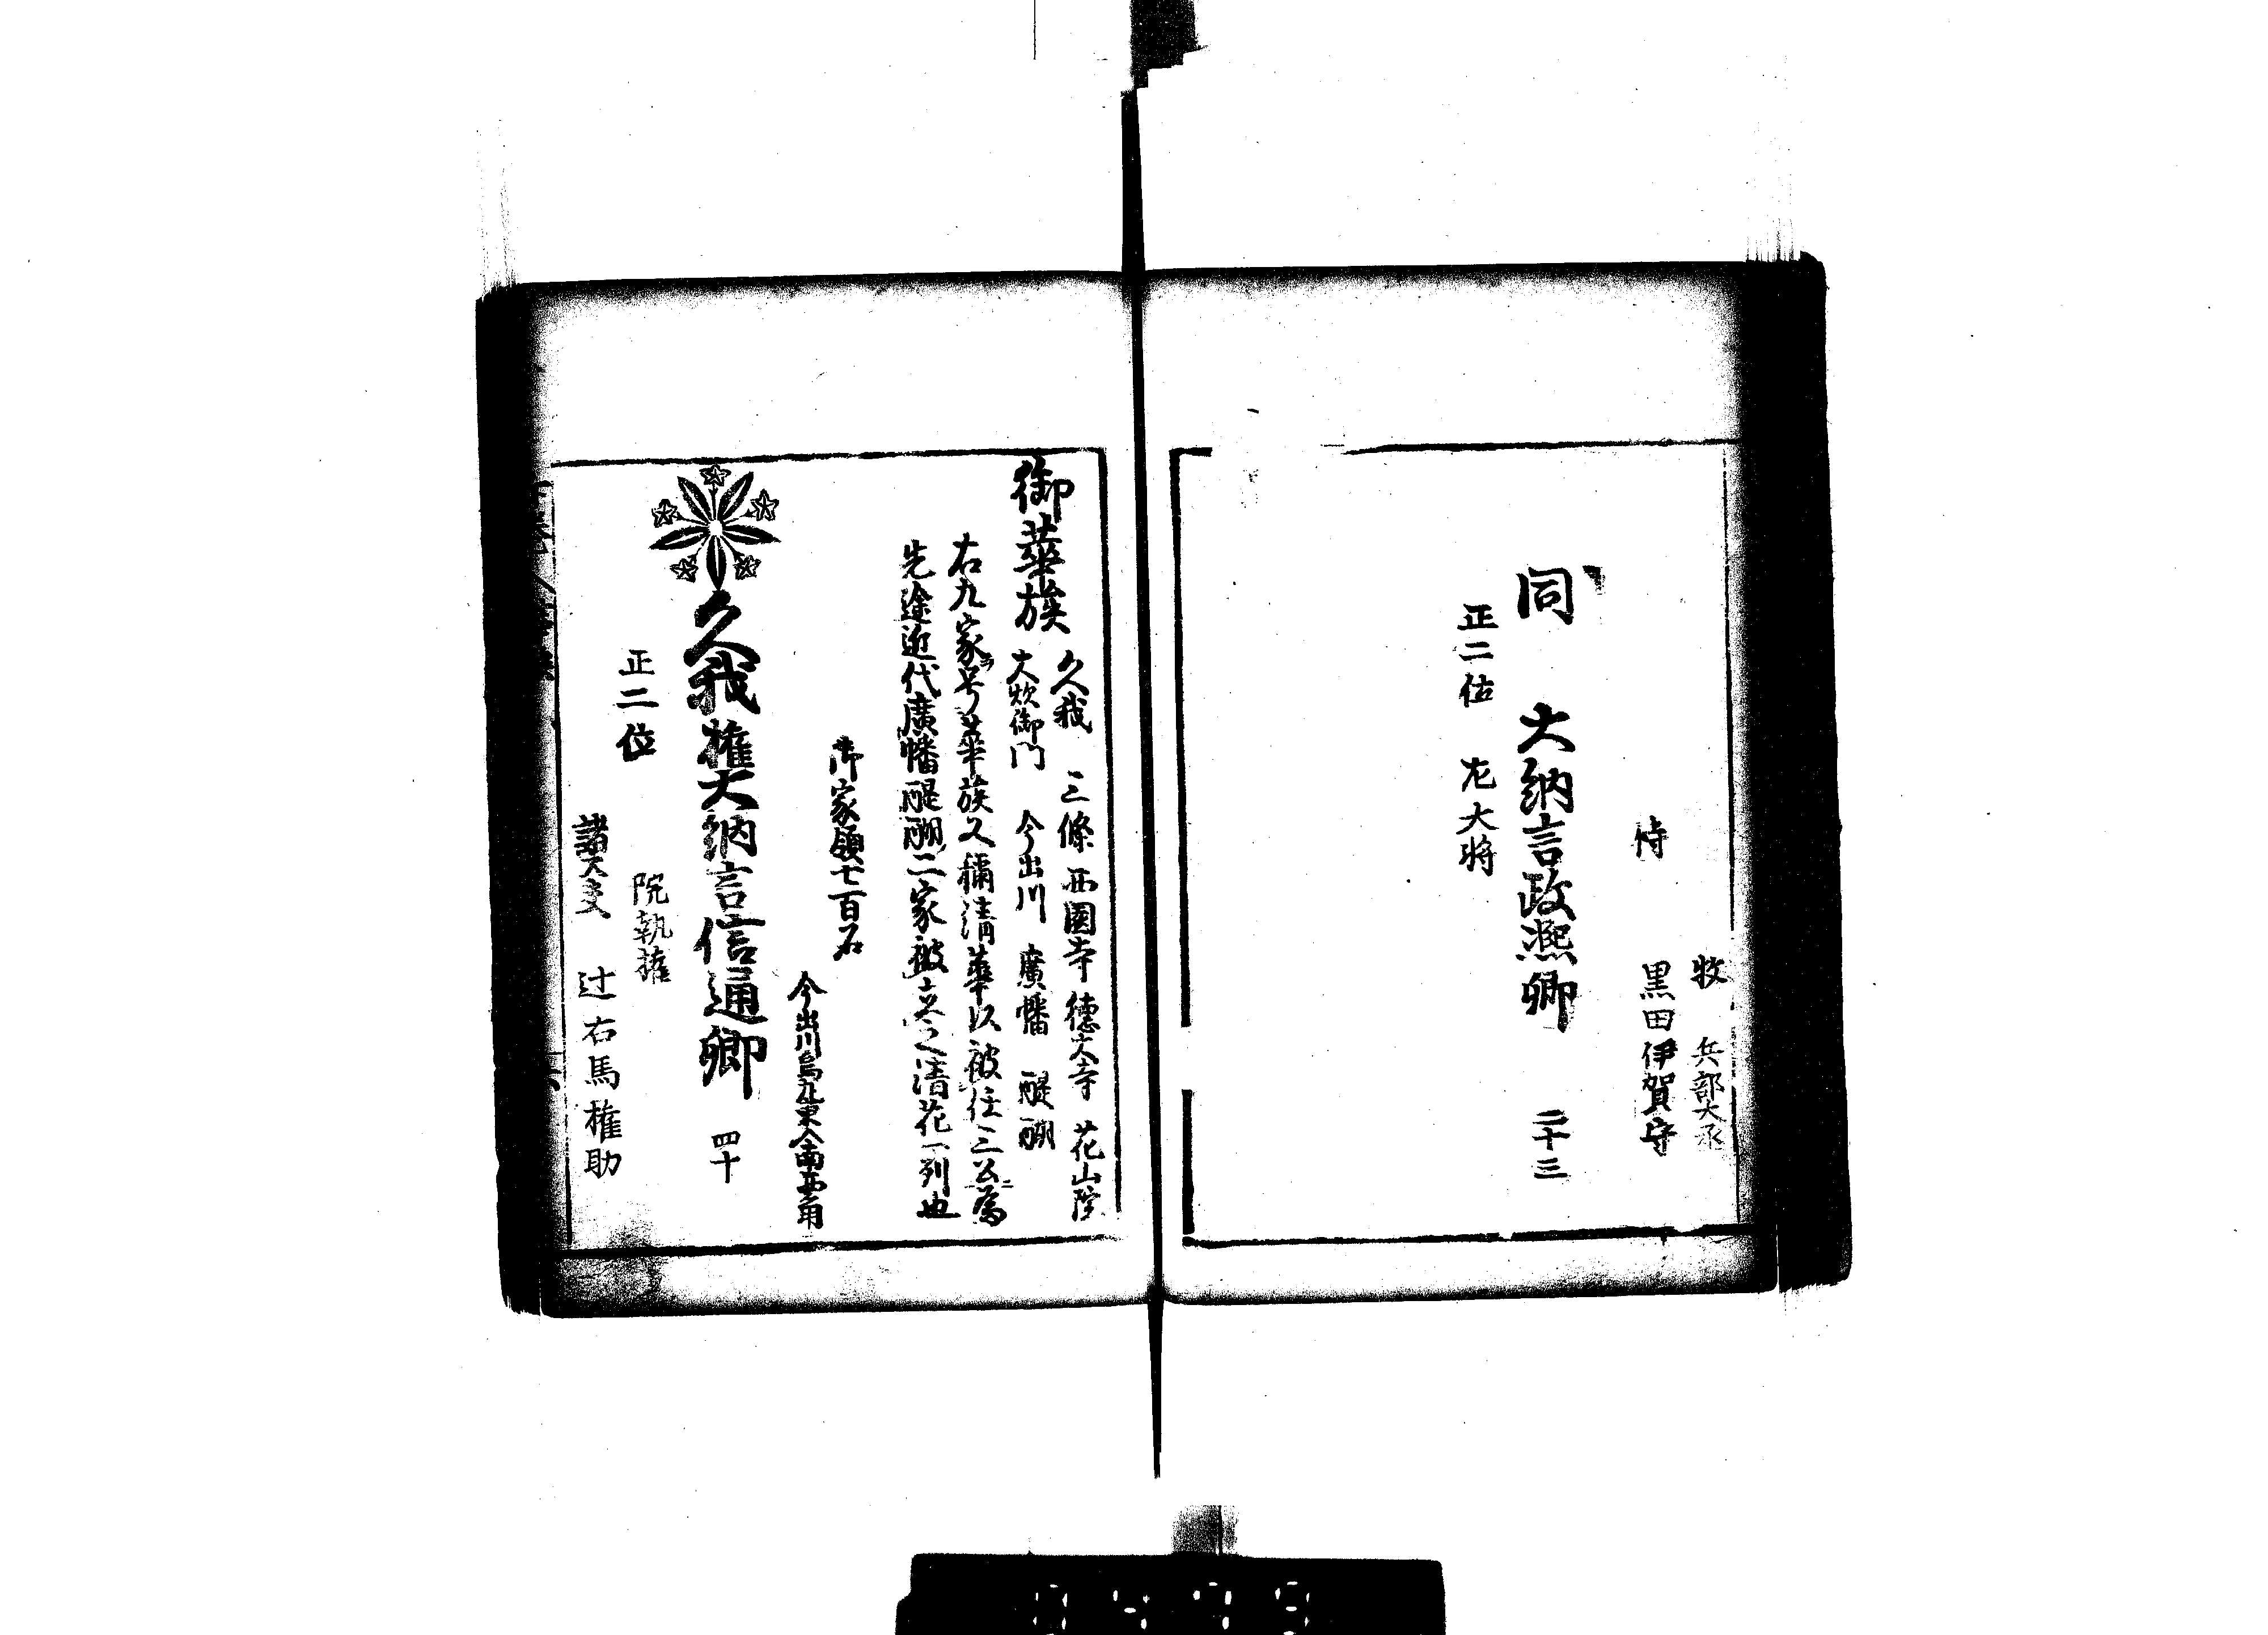 牧 兵部大丞
侍 黒田伊賀守
同 大納言政凞卿 二十三
正二位 左大将
御華族 久我 三條 西園寺 德大寺 花山院
大炊御門 今出川 廣幡 醍醐
右九家ヲ号華族又稱清華以被任三公為
先途近代廣幡醍醐二家被立之清花一列也
御家領七百石
今出川烏丸東入南西角
久我權大納言信通卿 四十
正二位 院執權
諸大夫 辻右馬権助